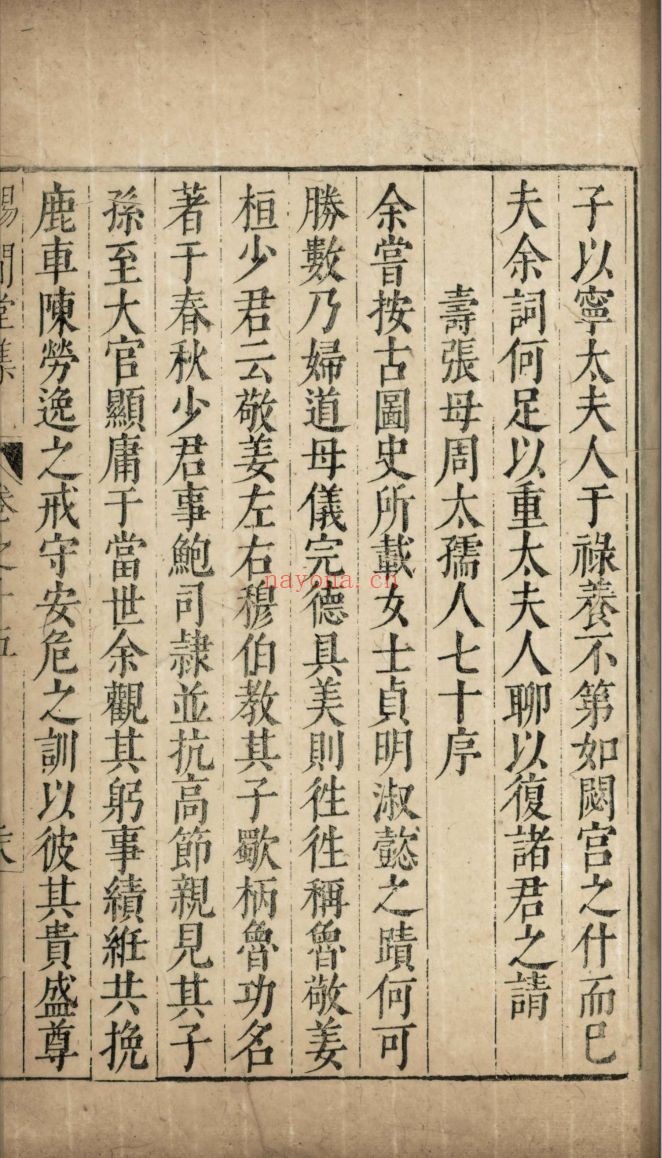 子以寧太夫人于祿養不第如閟宮之什而已
夫余詞何足以重太夫人聊以復諸君之請
壽張母周太孺人七十序
余嘗按古圖史所載女士貞明淑懿之蹟何可
勝數乃婦道母儀完德具美則徃徃稱魯敬姜
桓少君云敬姜左右穆伯教其子歜柄魯功名
著于春秋少君事鮑司隷並抗高節親見其子
孫至大官顯庸于當世余觀其躬事績絍共挽
鹿車陳勞逸之戒守安危之訓以彼其貴盛尊
賜閒堂集
卷之十五
nayona.cn